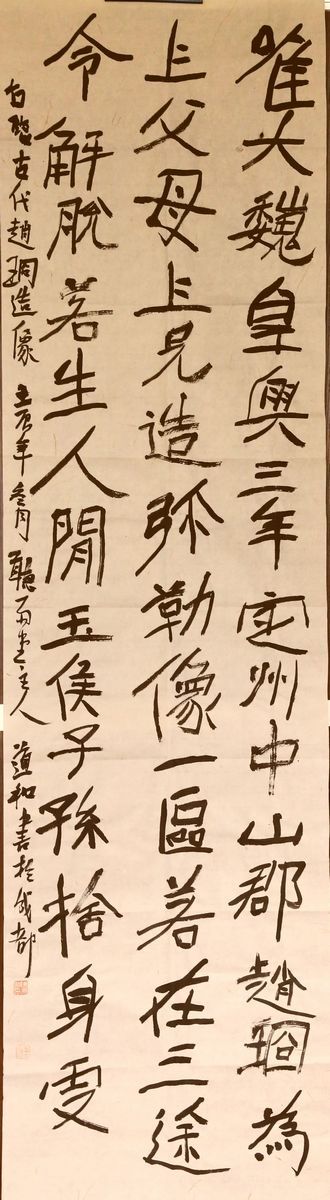 隹大魏皇興三年定州中山郡趙珚為
亡父母亡兄造弥勒像一區若在三途
令解脫若生人閒玉侯子孫捨身受
右臨古代趙珚造像 壬辰年冬月 聽雨堂主人 道和書於成都